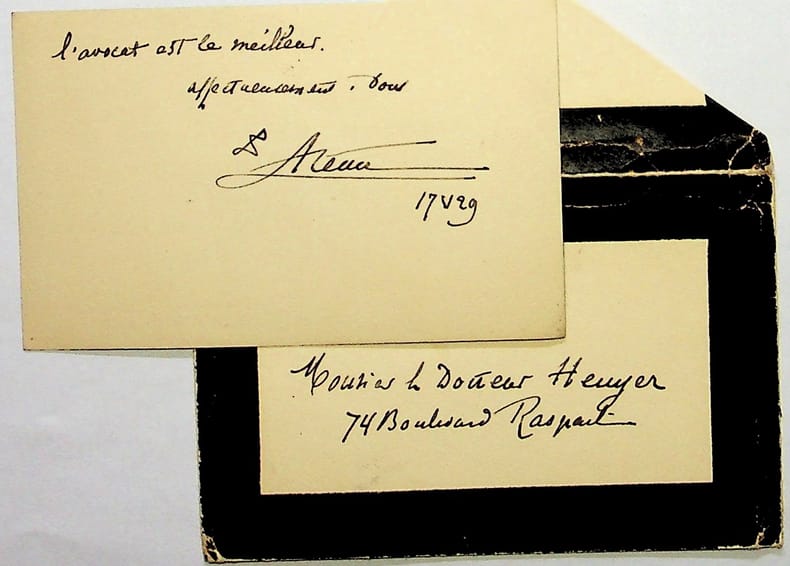 l'avocat est le meilleur.
affectueusement. Dous
17 V 29
Monsieur le Docteur Heuyer
74 Boulevard Raspail